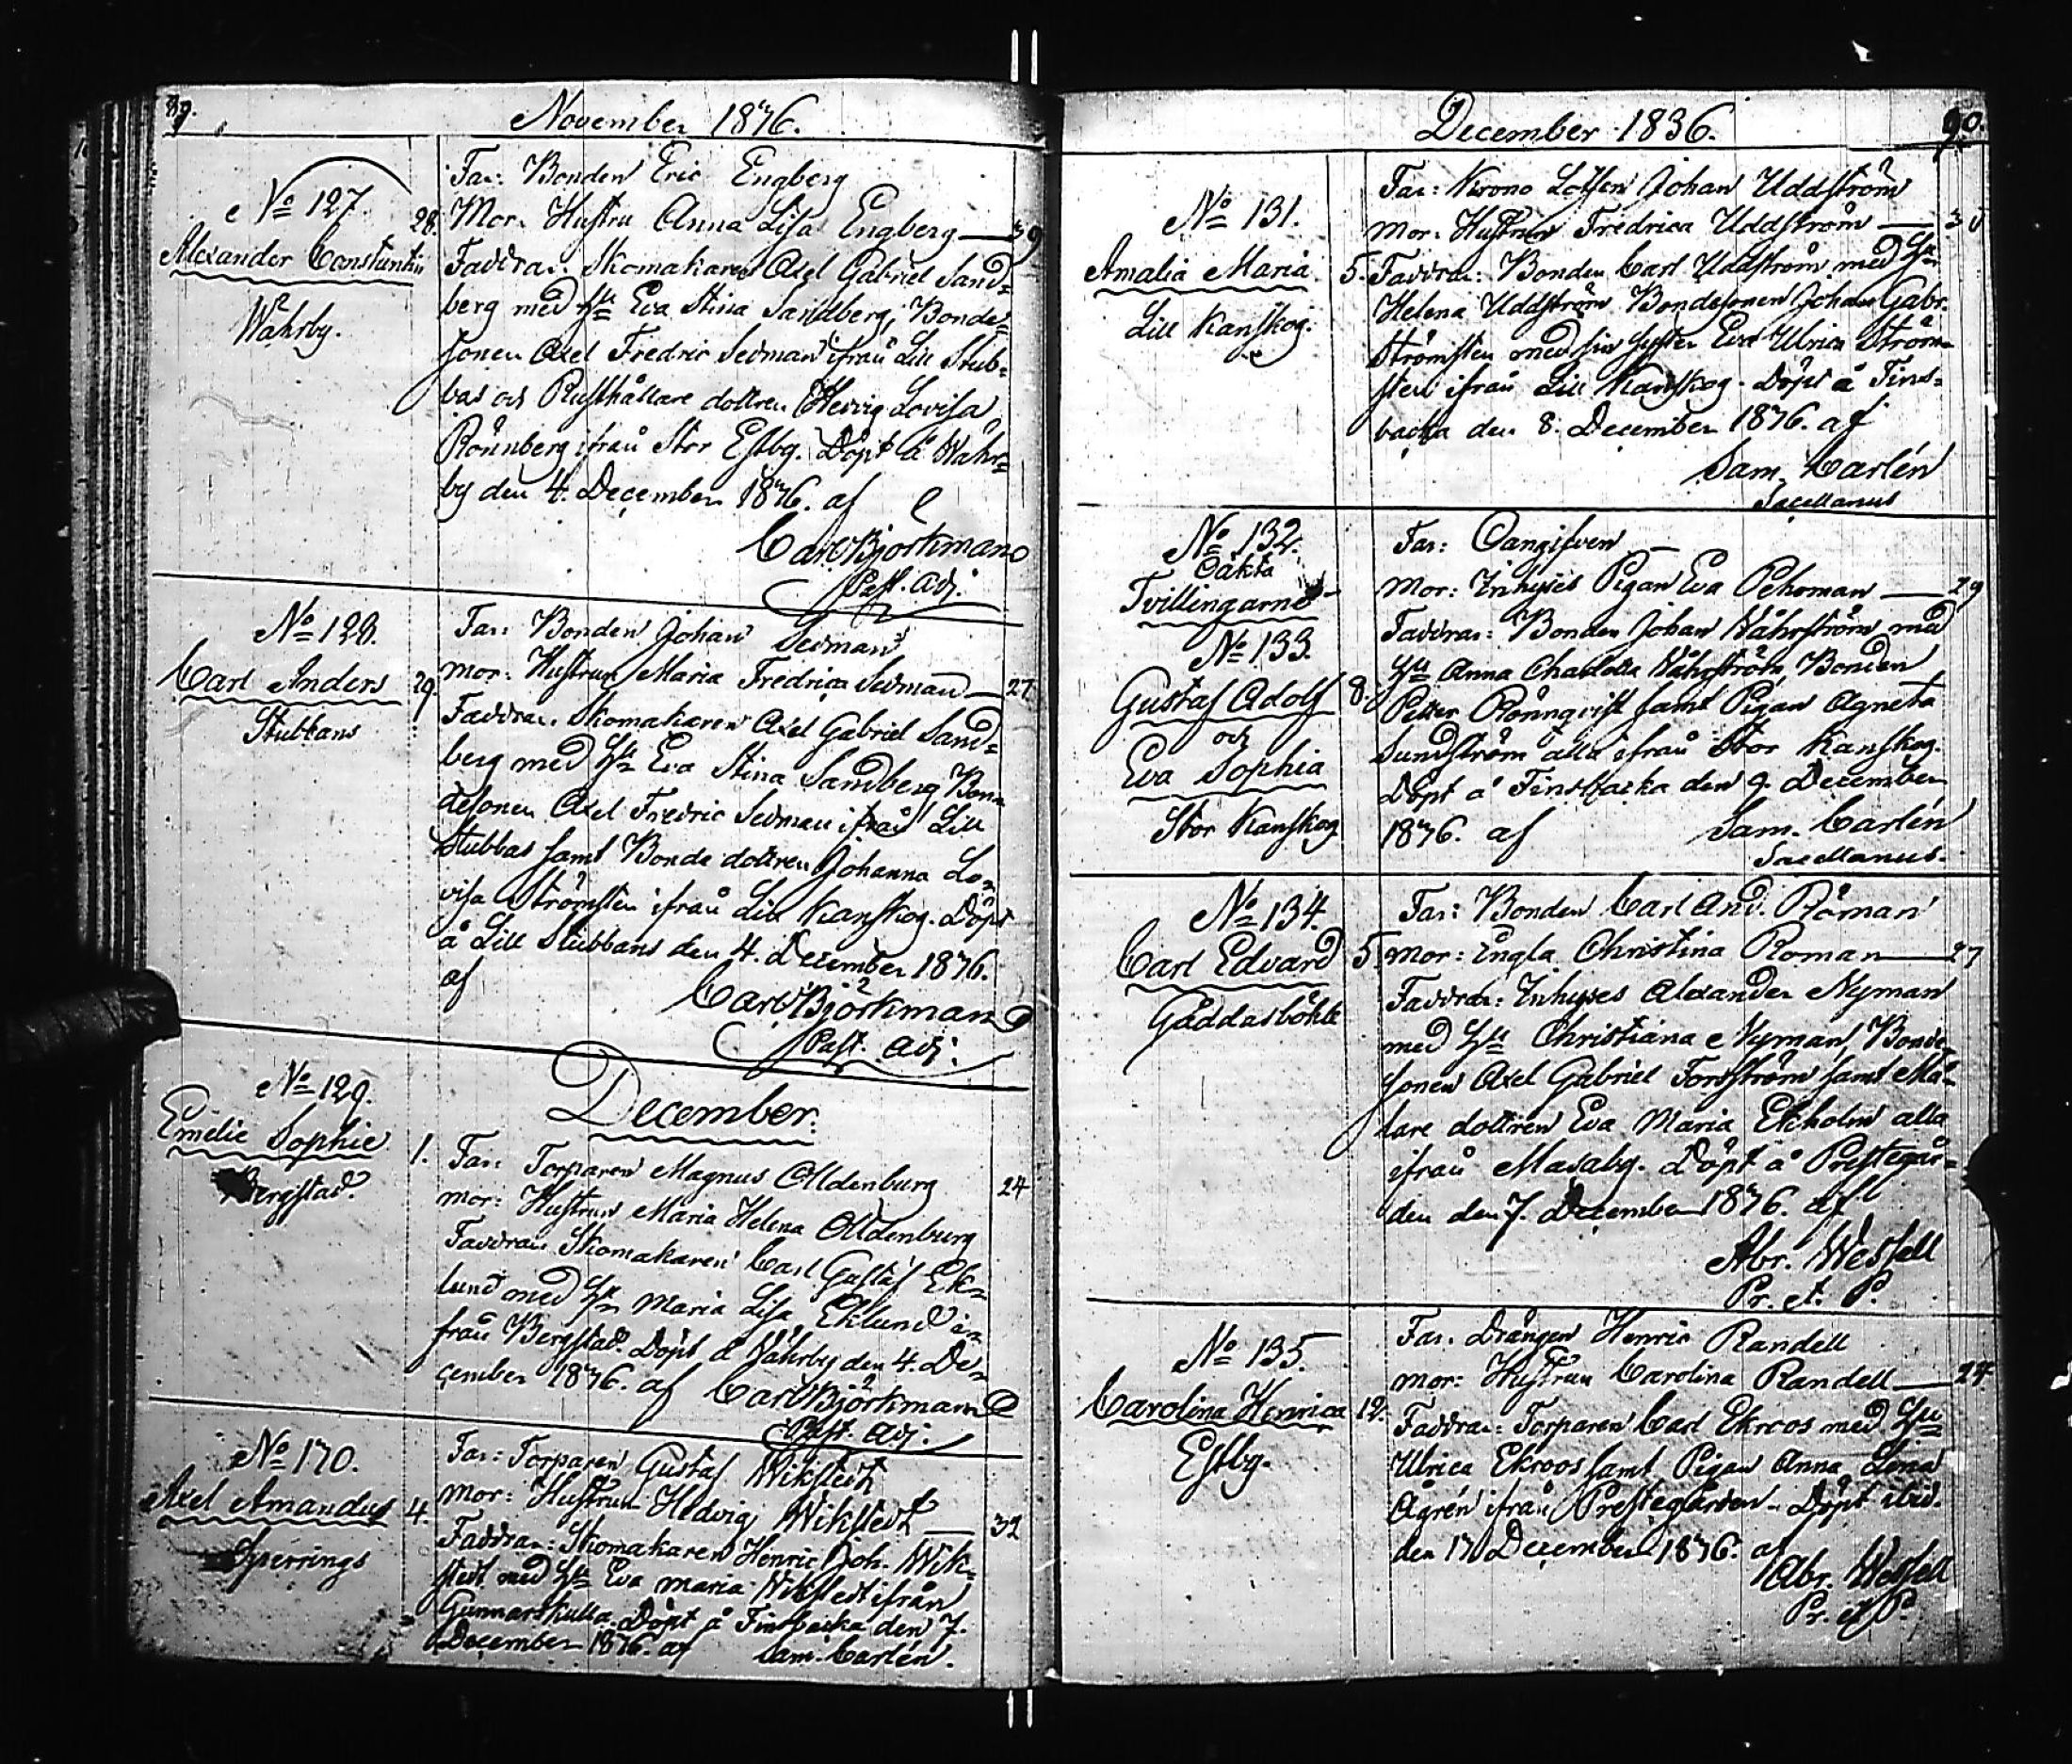 89.
November 1836.
No 127
Alexander Constantin
Wåhrby.
28.
Far: Bonden Eric Engberg
Mor: Hustru Anna Lisa Engberg — 39
Faddrar: Skomakaren Axel Gabriel Sand=
berg med Hu Eva Stina Sandberg, Bonde=
sonen Axel Fredric Sedman ifrån Lill Stub=
bas och Rusthållare dottren Hedvig Lovisa
Rönnberg ifrån Stor Estbg. Döpt å Wåhr=
by den 4. December 1836. af
Carl Björkman
Past. Adj.
No 128.
Carl Anders
Stubbans
29.
Far: Bonden Johan Sedman
Mor: Hustrun Maria Fredrica Sedman — 27
Faddrar: Skomakaren Axel Gabriel Sand=
berg med Hu Eva Stina Sandberg, Bon=
desonen Axel Fredric Sedman ifrån Lill
Stubbas samt Bonde dottren Johanna Lo=
visa Strömsten ifrån Lill Kanskog. Döpt
å Lill Stubbans den 4. December 1836.
af
Carl Björkman
Past. Adj.
December.
No 129.
Emelie Sophie
Bergstad.
1.
Far: Torparen Magnus Olldenburg 24
Mor: Hustrun Maria Helena Olldenburg
Faddrar: Skomakaren Carl Gustaf Ek=
lund med Hu Maria Lisa Eklund i=
från Bergstad. Döpt å Wåhrby den 4. De=
cember 1836. af Carl Björkman
Past. Adj.
No 130.
Axel Amandus
Sperrings
4.
Far: Torparen Gustaf Wikstedt
Mor: Hustrun Hedvig Wikstedt — 32
Faddrar: Skomakaren Henric Joh. Wik=
stedt med Hu Eva Maria Wikstedt ifrån
Gunnarskulla. Döpt å Finsbacka den 7.
December 1836. af Sam. Carlén.
December 1836.
90.
No 131.
Amalia Maria
Lill Kanskog.
5.
Far: Krono Lotsen Johan Uddström
Mor: Hustrun Fredrica Uddström —
Faddrar: Bonden Carl Uddström med Hu
Helena Uddström Bondesonen Johan Gabr.
Strömsten med sin Syster Eva Ulrica Ström=
sten ifrån Lill Kanskog. Döpt å Fins=
backa den 8. December 1836. af
Sam. Carlén
Sacellanus
No 132.
Oäkta
Tvillingarne
No 133.
Gustaf Adolf
och
Eva Sophia
Stor Kanskog
8.
Far: Oangifven —
Mor: Inhyses Pigan Eva Pehrman — 29
Faddrar: Bonden Johan Wåhrström med
Hu Anna Charlotta Wåhrström, Bonden
Petter Rönnqvist samt Pigan Agneta
Sundström alla ifrån Stor Kanskog.
Döpt å Finsbacka den 9. December
1836. af Sam. Carlén
Sacellanus.
No 134.
Carl Edvard
Gäddasböhle
5.
Far: Bonden Carl And. Roman
Mor: Engla Christina Roman — 27
Faddrar: Inhyses Alexander Nyman
med Hu Christiana Nyman, Bonde=
sonen Axel Gabriel Forsström samt Må=
lare dottren Eva Maria Ekholm alla
ifrån Masaby. Döpt å Prestegår=
den den 7. December 1836. af
Abr. Wessell
Pr. et. P.
No 135.
Carolina Henrica
Estbg.
12.
Far: Drängen Henric Randell
Mor: Hustrun Carolina Randell — 24.
Faddrar: Torparen Carl Ekroos med Hu
Ulrica Ekroos samt Pigan Anna Lena
Ågrén ifrån Prestegården. Döpt ibid.
den 17 December 1836. af
Abr. Wessell
Pr. et P.